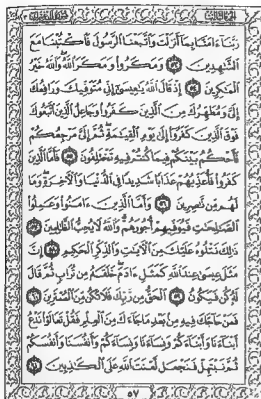 رَبَّنَآ ءَامَنَّا بِمَآ أَنزَلْتَ وَٱتَّبَعْنَا ٱلرَّسُولَ فَٱكْتُبْنَا مَعَ
ٱلشَّٰهِدِينَ ٥٣ وَمَكَرُوا۟ وَمَكَرَ ٱللَّهُ وَٱللَّهُ خَيْرُ
ٱلْمَٰكِرِينَ ٥٤ إِذْ قَالَ ٱللَّهُ يَٰعِيسَىٰٓ إِنِّى مُتَوَفِّيكَ وَرَافِعُكَ
إِلَىَّ وَمُطَهِّرُكَ مِنَ ٱلَّذِينَ كَفَرُوا۟ وَجَاعِلُ ٱلَّذِينَ ٱتَّبَعُوكَ
فَوْقَ ٱلَّذِينَ كَفَرُوٓا۟ إِلَىٰ يَوْمِ ٱلْقِيَٰمَةِ ثُمَّ إِلَىَّ مَرْجِعُكُمْ
فَأَحْكُمُ بَيْنَكُمْ فِيمَا كُنتُمْ فِيهِ تَخْتَلِفُونَ ٥٥ فَأَمَّا ٱلَّذِينَ
كَفَرُوا۟ فَأُعَذِّبُهُمْ عَذَابًا شَدِيدًا فِى ٱلدُّنْيَا وَٱلْءَاخِرَةِ وَمَا
لَهُم مِّن نَّٰصِرِينَ ٥٦ وَأَمَّا ٱلَّذِينَ ءَامَنُوا۟ وَعَمِلُوا۟
ٱلصَّٰلِحَٰتِ فَيُوَفِّيهِمْ أُجُورَهُمْ وَٱللَّهُ لَا يُحِبُّ ٱلظَّٰلِمِينَ ٥٧
ذَٰلِكَ نَتْلُوهُ عَلَيْكَ مِنَ ٱلْءَايَٰتِ وَٱلذِّكْرِ ٱلْحَكِيمِ ٥٨ إِنَّ
مَثَلَ عِيسَىٰ عِندَ ٱللَّهِ كَمَثَلِ ءَادَمَ خَلَقَهُۥ مِن تُرَابٍ ثُمَّ قَالَ
لَهُۥ كُن فَيَكُونُ ٥٩ ٱلْحَقُّ مِن رَّبِّكَ فَلَا تَكُن مِّنَ ٱلْمُمْتَرِينَ ٦٠
فَمَنْ حَآجَّكَ فِيهِ مِنۢ بَعْدِ مَا جَآءَكَ مِنَ ٱلْعِلْمِ فَقُلْ تَعَالَوْا۟ نَدْعُ
أَبْنَآءَنَا وَأَبْنَآءَكُمْ وَنِسَآءَنَا وَنِسَآءَكُمْ وَأَنفُسَنَا وَأَنفُسَكُمْ
ثُمَّ نَبْتَهِلْ فَنَجْعَل لَّعْنَتَ ٱللَّهِ عَلَى ٱلْكَٰذِبِينَ ٦١
٥٧